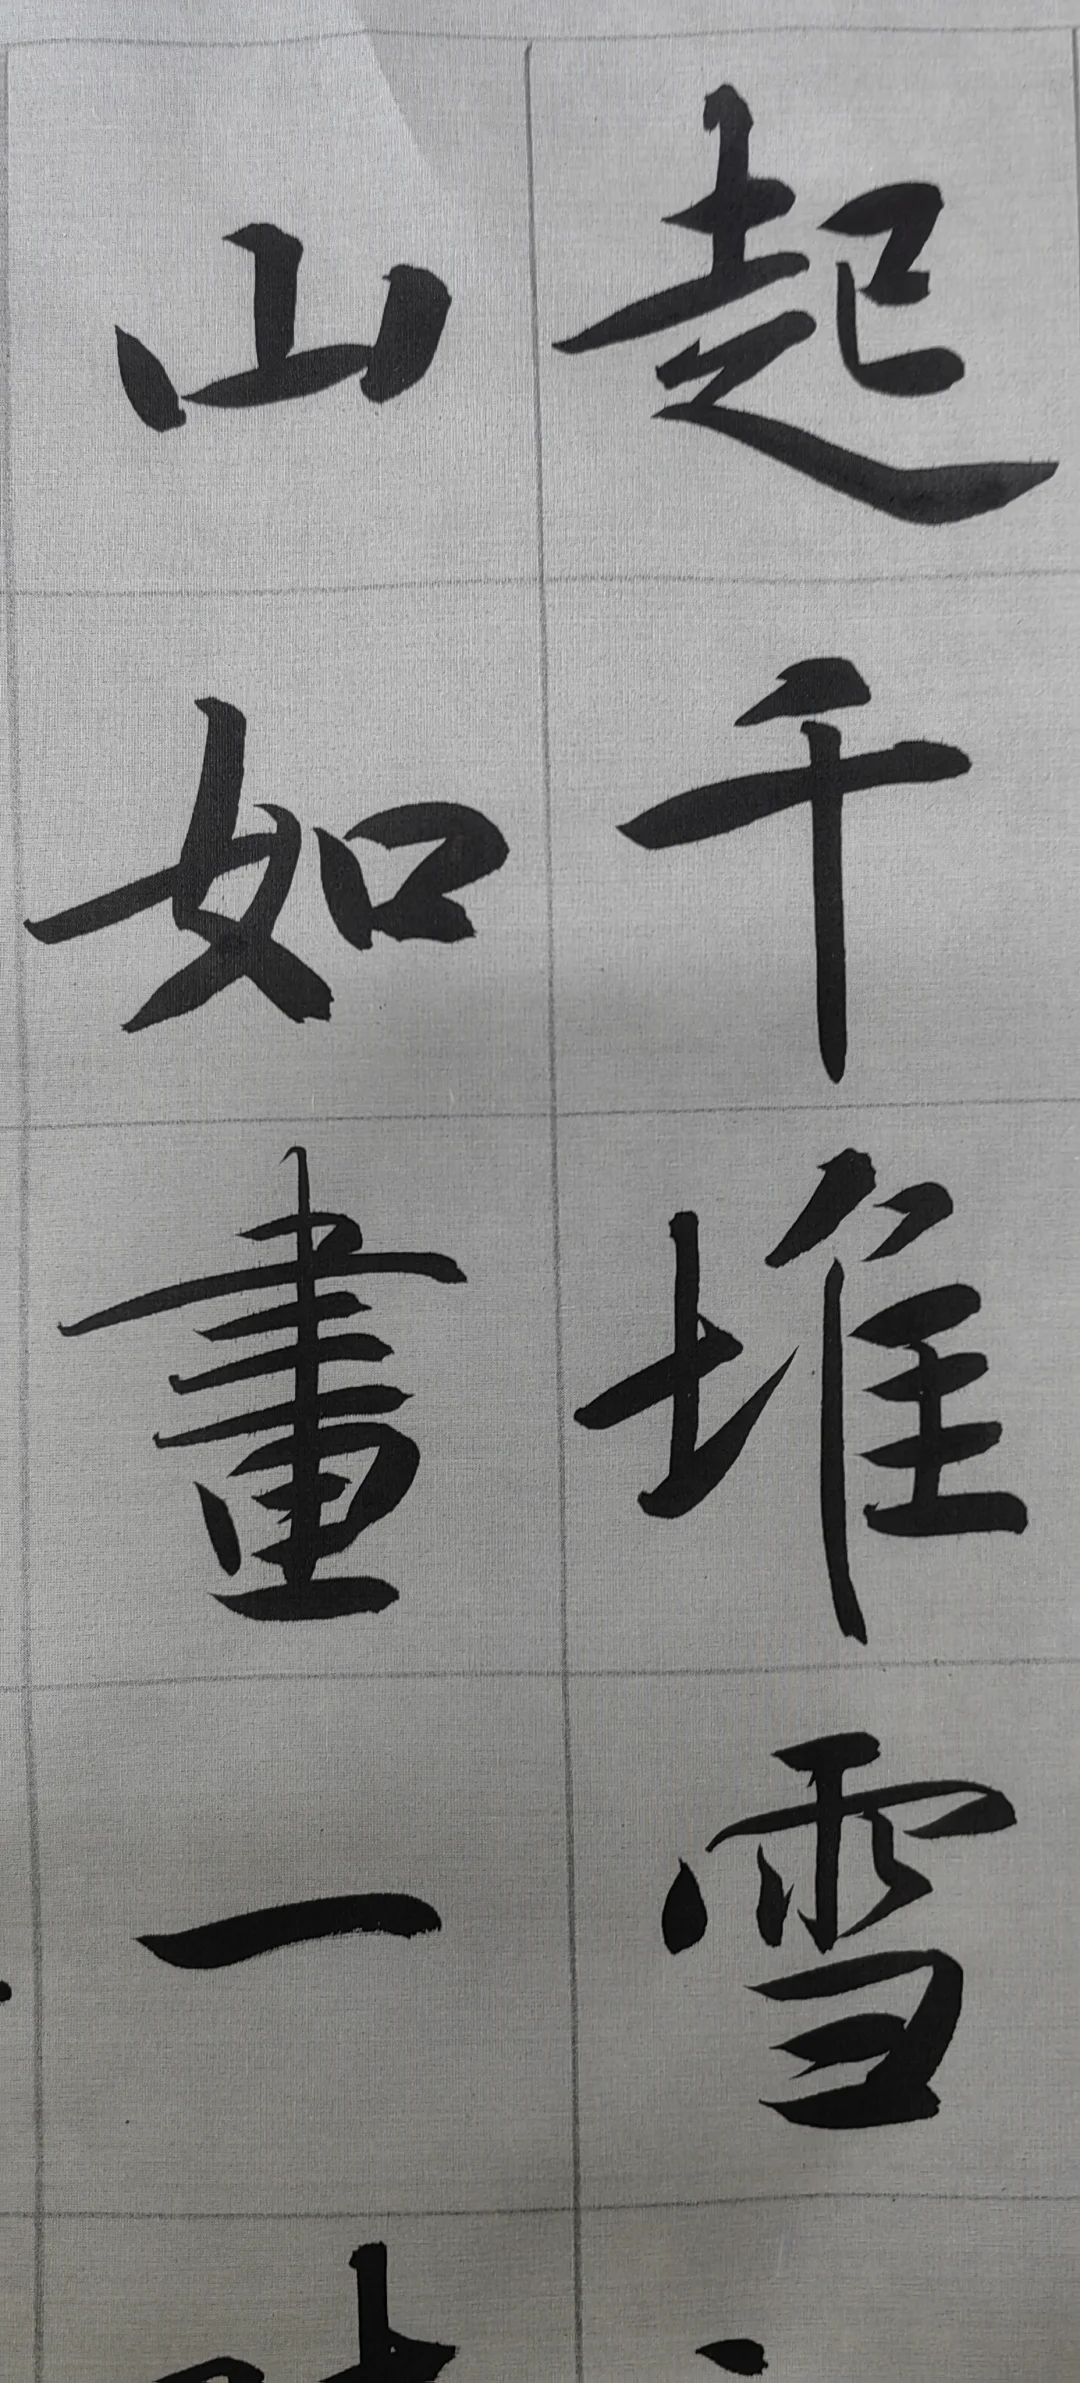 起千堆雪
山如畫一